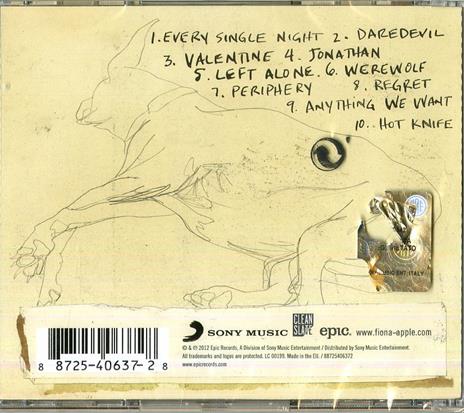 1. EVERY SINGLE NIGHT 2. DAREDEVIL
3. VALENTINE 4. JONATHAN
5. LEFT ALONE. 6. WEREWOLF
7. PERIPHERY 8. REGRET
9. ANYTHING WE WANT
10.. HOT KNIFE
SONY MUSIC CLEAN SLATE epic. www.fiona-apple.com
℗ & © 2012 Epic Records, A Division of Sony Music Entertainment / Distributed by Sony Music Entertainment.
All trademarks and logos are protected. LC 00199. Made in the EU. / 88725406372
www.epicrecords.com
8 88725-40637-2 8